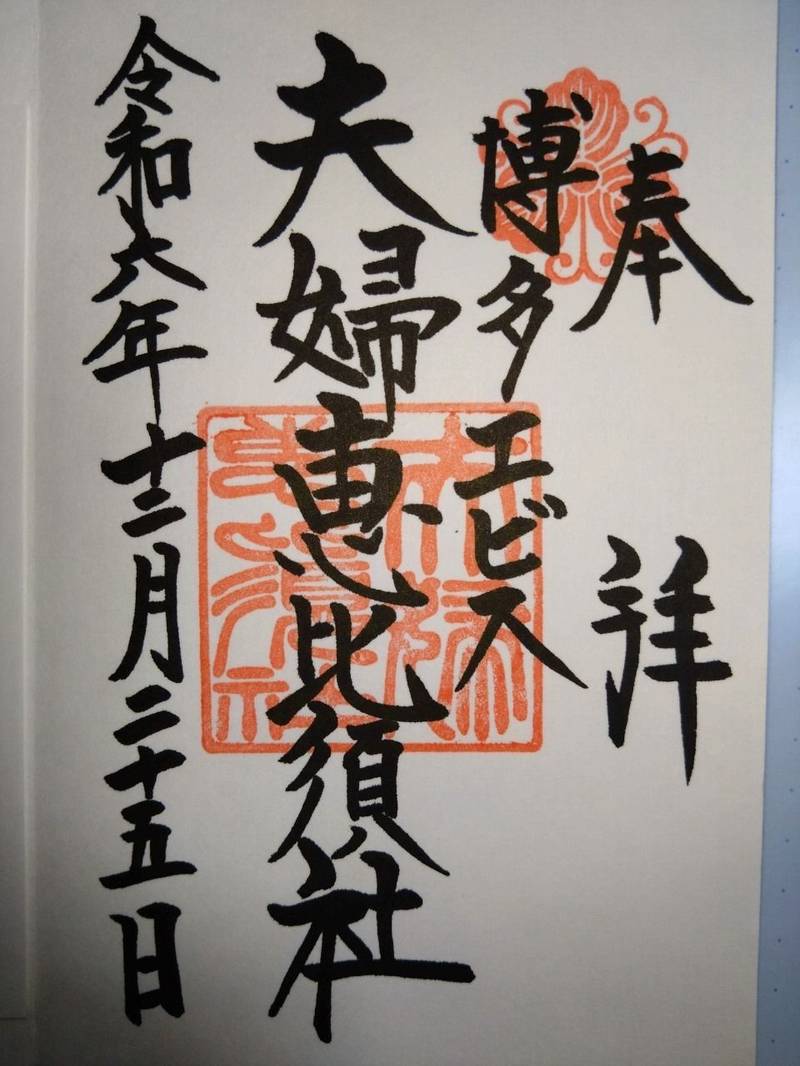 奉拝
博多エビス
夫婦恵比須社
令和六年十二月二十五日